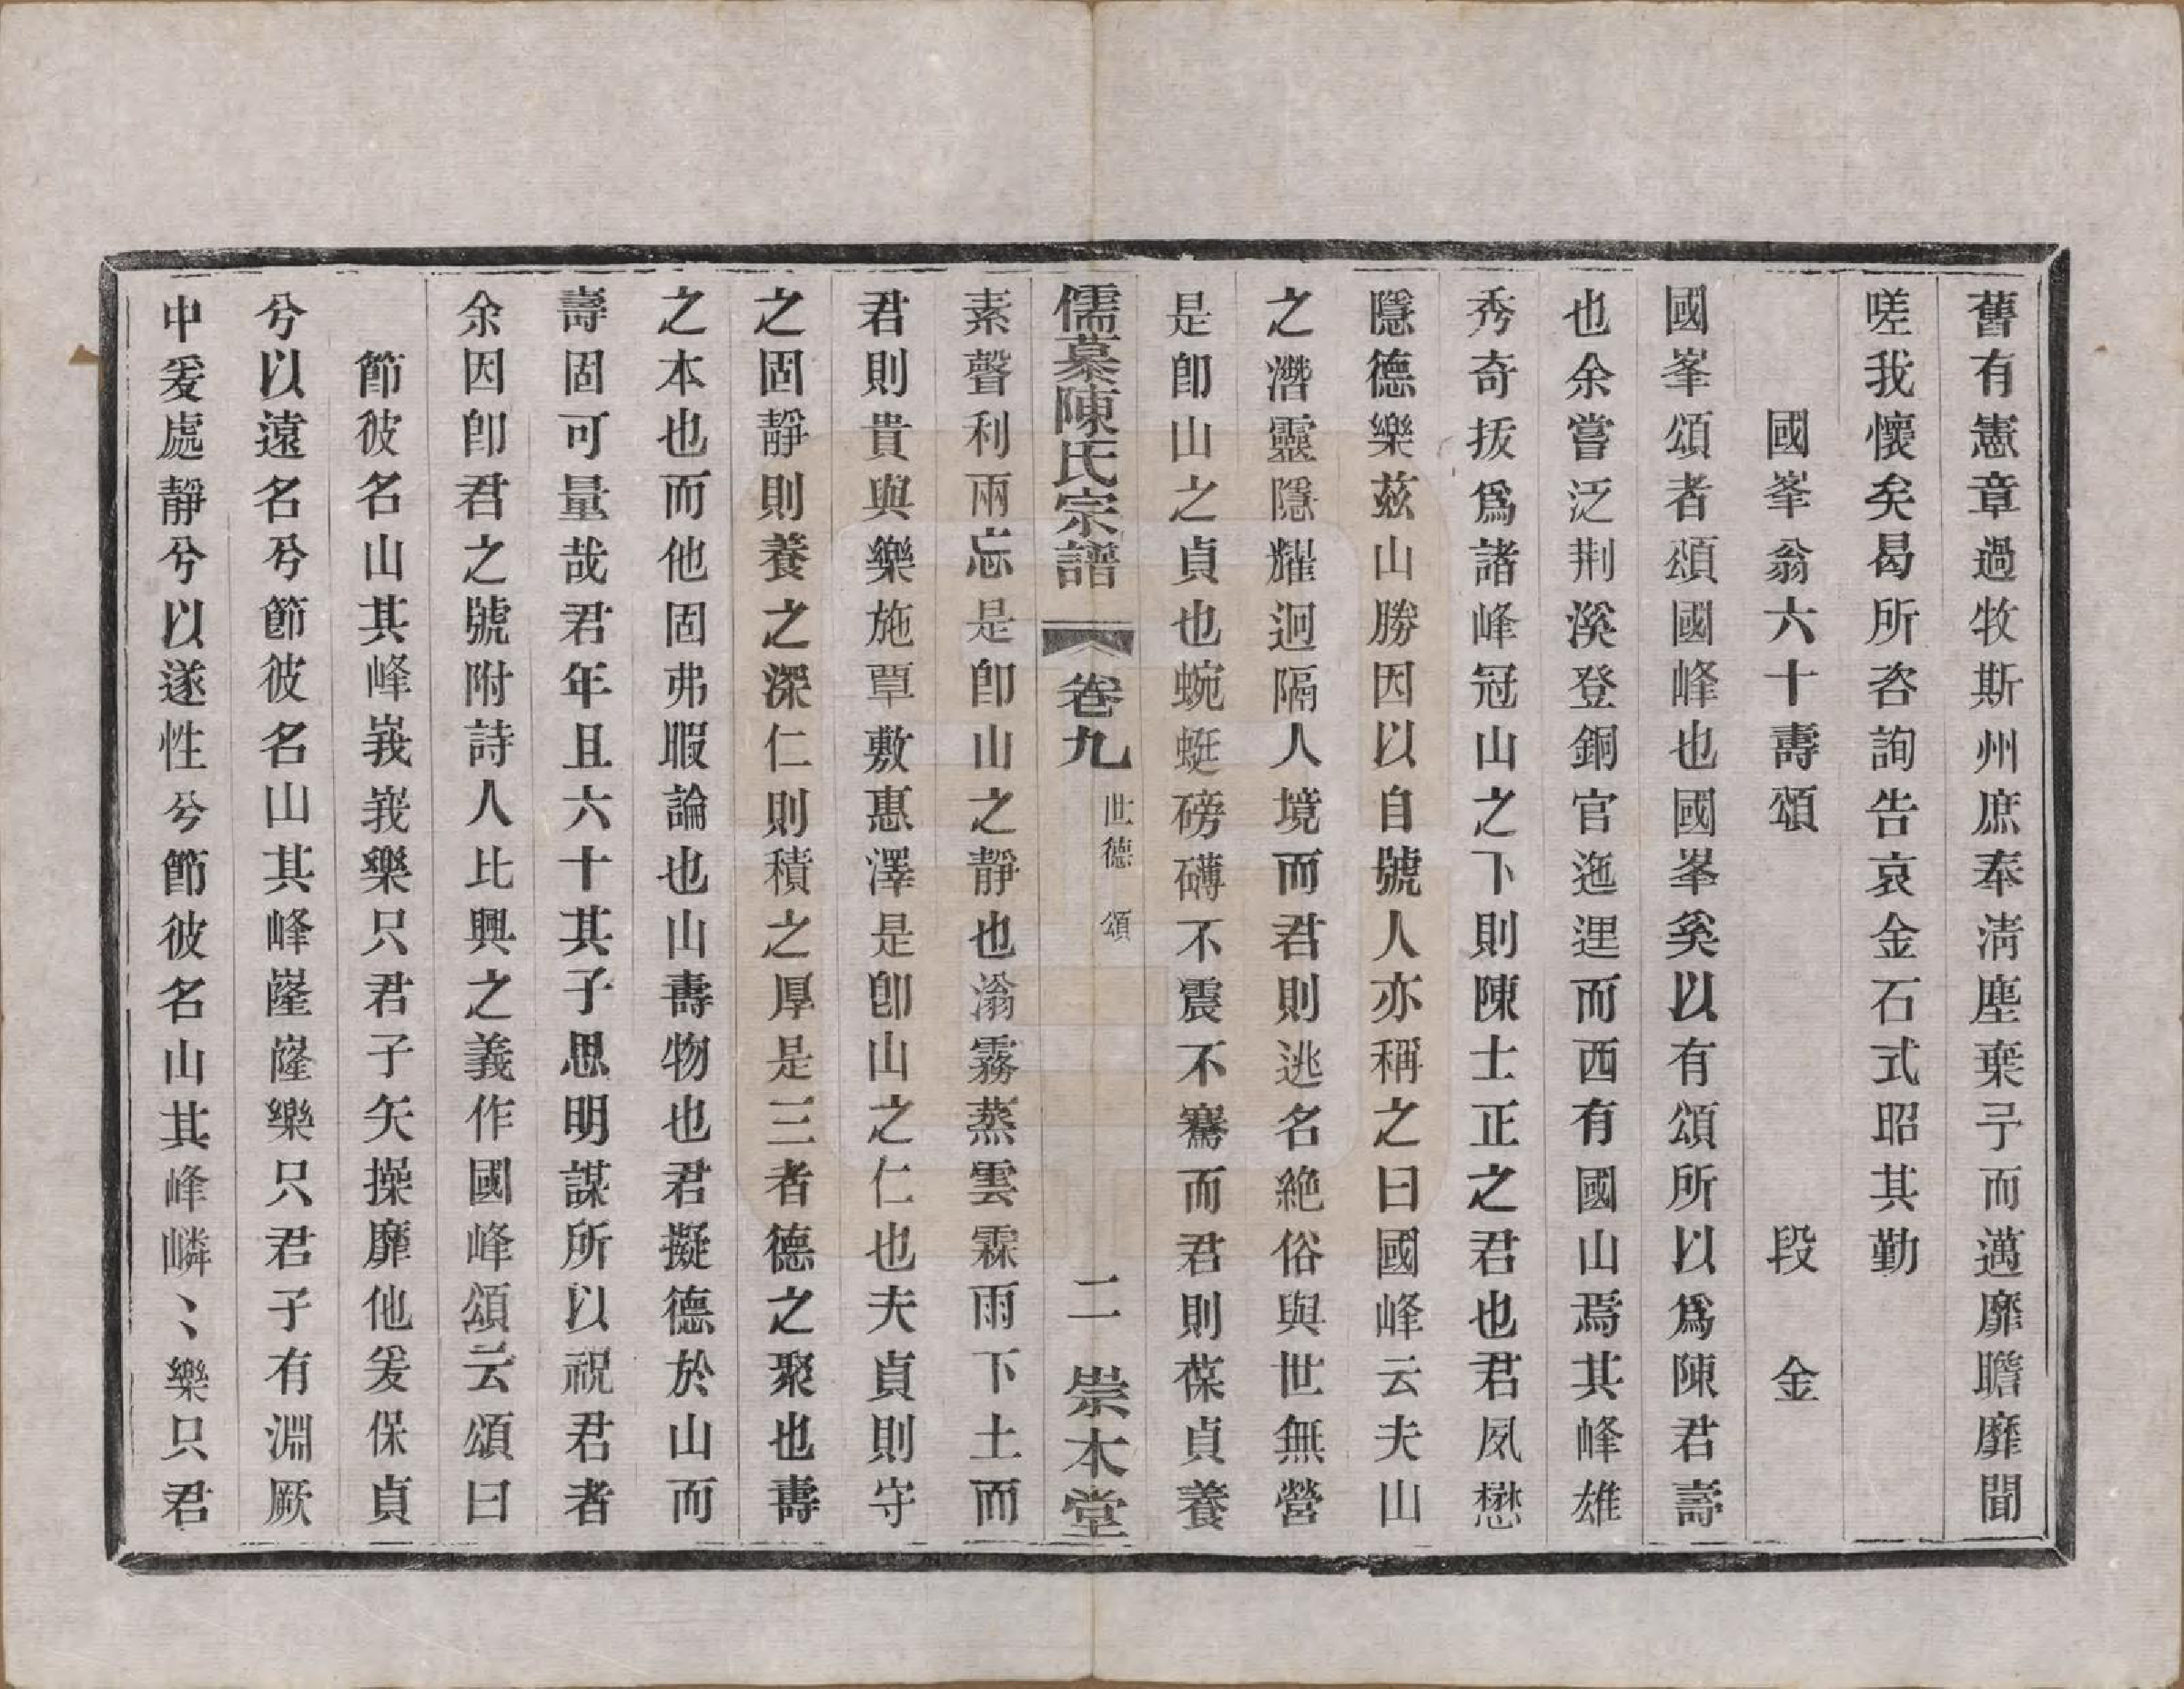 舊有憲章過牧斯州庶奉淸塵棄予而邁靡瞻靡聞
嗟我懷矣曷所咨詢告哀金石式昭其勤
國峯翁六十壽頌　段　金
國峯頌者頌國峰也國峯奚以有頌所以爲陳君壽
也余嘗泛荆溪登銅官迤逕而西有國山焉其峰雄
秀奇抜爲諸峰冠山之下則陳士正之君也君夙懋
隱德樂茲山勝因以自號人亦稱之曰國峰云夫山
之潛靈隱耀迥隔人境而君則逃名絶俗與世無營
是卽山之貞也蜿蜒磅礴不震不騫而君則葆貞養
儒蓁陳氏宗譜　卷九　世德　頌　二　崇本堂
素聲利兩忘是卽山之靜也滃霧蒸雲霖雨下土而
君則貴與樂施覃敷惠澤是卽山之仁也夫貞則守
之固靜則養之深仁則積之厚是三者德之聚也壽
之本也而他固弗暇論也山壽物也君擬德於山而
壽固可量哉君年且六十其子思明謀所以祝君者
余因卽君之號附詩人比興之義作國峰頌云頌曰
節彼名山其峰峩峩樂只君子矢操靡他爰保貞
兮以遠名兮節彼名山其峰嶐嶐樂只君子有淵厥
中爰處靜兮以遂性兮節彼名山其峰嶙〻樂只君